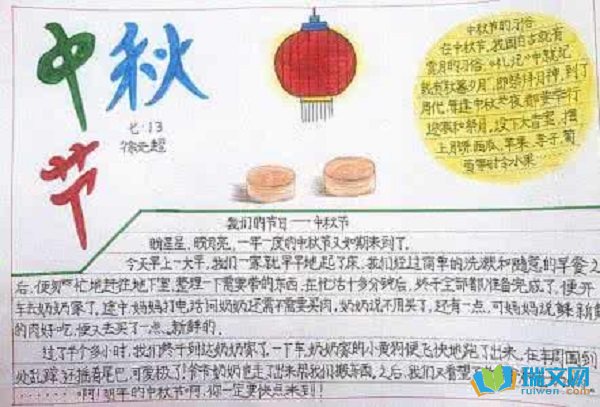 中秋节
七·13
徐
中秋节的习俗
在中秋节,我国自古就有
赏月的习俗,《礼记》中就记
载有秋暮夕月,即祭拜月神,到了
周代,每逢中秋之夜都要举行
迎寒和祭月,设下大香案,摆
上月饼,西瓜,苹果、李子、葡
萄等时令水果
我们的节日——中秋节
盼星星,盼月亮,一年一度的中秋节又如期来到了。
今天早上一大早,我们一家就早早地起了床,我们经过简单的洗漱和随意的早餐之
后,便匆忙地赶往地下室,整理一下需要带的东西,在忙活十多分钟后,终于全部都准备完成了,便开
车去奶奶家了。途中,妈妈打电话问奶奶还需不需要买肉,奶奶说不用买了,还有一点,可妈妈说
的肉好吃,便又去买了一点、新鲜的.
过了半个多小时,我们终于到达奶奶家了,一下车,奶奶家的小黄狗便飞快地跑了出来,在车周围到
处乱蹿,还摇着尾巴,可爱极了!爷爷奶奶也走了出来帮我们搬东西,之后,我们又
啊!明年的中秋节啊,你一定要快点来到!
瑞文网